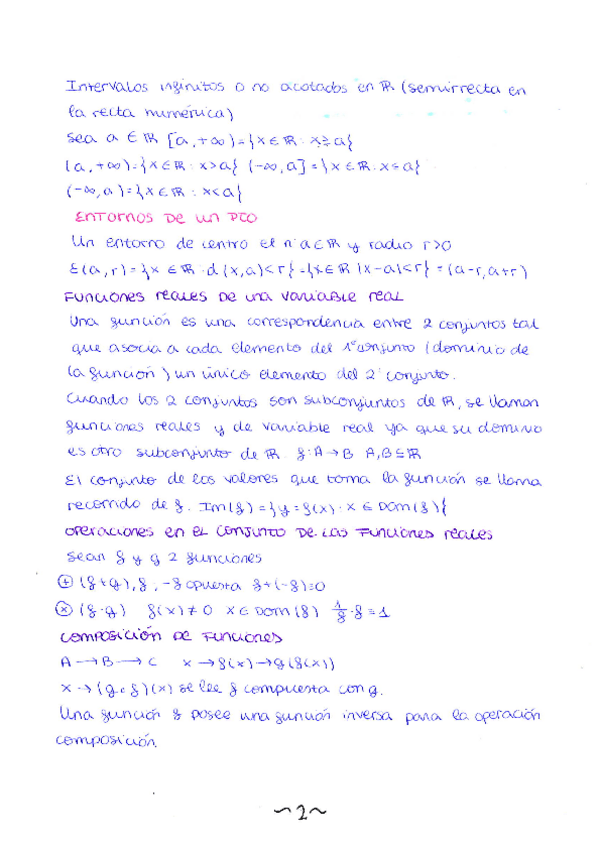 Intervalos infinitos o no acotados en ℝ (semirrecta en
la recta numérica)
sea a ∈ ℝ [a, +∞) = {x ∈ ℝ : x ≥ a}
(a, +∞) = {x ∈ ℝ : x > a} (-∞, a] = {x ∈ ℝ : x ≤ a}
(-∞, a) = {x ∈ ℝ : x < a}
ENTORNOS DE UN PTO
Un entorno de centro el nº a ∈ ℝ y radio r > 0
E(a, r) = {x ∈ ℝ : d(x, a) < r} = {x ∈ ℝ |x-a| < r} = (a-r, a+r)
FUNCIONES REALES DE UNA VARIABLE REAL
Una función es una correspondencia entre 2 conjuntos tal
que asocia a cada elemento del 1º conjunto (dominio de
la función) un único elemento del 2º conjunto.
Cuando los 2 conjuntos son subconjuntos de ℝ, se llaman
funciones reales y de variable real ya que su dominio
es otro subconjunto de ℝ f: A → B A, B ⊆ ℝ
El conjunto de los valores que toma la función se llama
recorrido de f. Im(f) = }y = f(x) · x ∈ Dom(f){
OPERACIONES EN EL CONJUNTO DE LAS FUNCIONES REALES
Sean f y g 2 funciones
⊕ (f+g), f, -f opuesta f+(-f)=0
⊗ (f·g) f(x) ≠ 0 x ∈ Dom(f) 1/f · f = 1
COMPOSICIÓN DE FUNCIONES
A → B → C x → f(x) → g(f(x))
x → (g∘f)(x) se lee f compuesta con g.
Una función f posee una función inversa para la operación
composición.
~2~